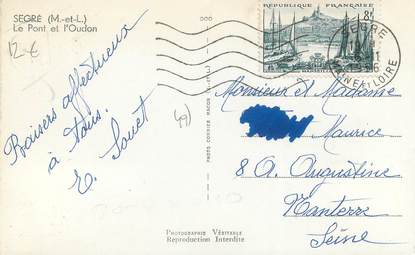 SEGRÉ (M.-et-L.)
Le Pont et l'Oudon
12 €
Baisers affectueux
à tous.
E. Souet
49
PHOTO COMBIER MACON
8F
RÉPUBLIQUE FRANÇAISE
MARSEILLE
SEGRÉ
MNE-ET-LOIRE
Monsieur et Madame
Maurice
8 A. Augustine
Nanterre
Seine
PHOTOGRAPHIE VÉRITABLE
Reproduction Interdite